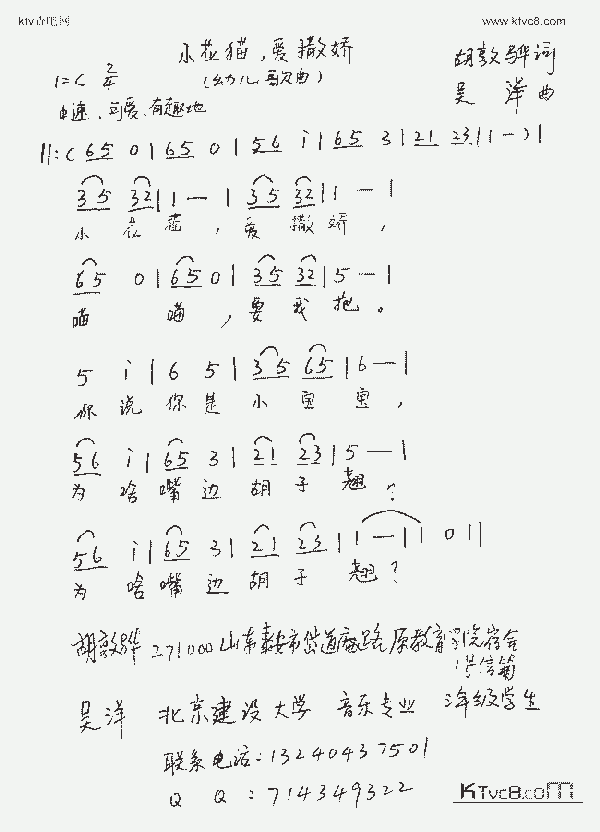 ktv吉他网 www.ktvc8.com
小花猫,爱撒娇
(幼儿歌曲)
胡敦骅词
吴 洋 曲
1=C 2/4
中速、可爱、有趣地
||:( 65 0 | 65 0 | 56 i | 65 3 | 21 23 | 1 — ) |
35 32 | 1 — | 35 32 | 1 — |
小 花 猫, 爱 撒 娇,
65 0 | 65 0 | 35 32 | 5 — |
喵 喵, 要 我 抱。
5 i | 6 5 | 35 65 | 6 — |
你 说 你 是 小 宝 宝,
56 i | 65 3 | 21 23 | 5 — |
为 啥 嘴 边 胡 子 翘?
56 i | 65 3 | 21 23 | 1 — | 1 0 ||
为 啥 嘴 边 胡 子 翘?
胡敦骅 271000 山东泰安市岱道庵路原教育学院宿舍
信箱
吴洋 北京建设大学 音乐专业 年级学生
联系电话:13240437501
Q Q :714349322
KTvc8.com